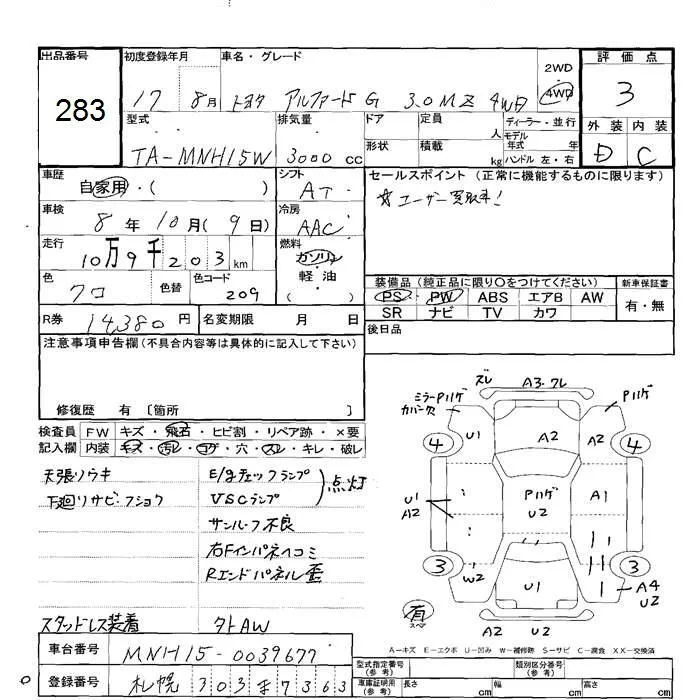 出品番号 283
初度登録年月 17 8月
車名・グレード トヨタ アルファード G 3.0 MZ 4WD
2WD
4WD
評価点 3
外装 内装
D C
型式 TA-MNH15W
排気量 3000 cc
ドア 定員 人
形状 積載 kg
ディーラー・並行
モデル年式 年
ハンドル 左・右
車歴 自家用・( )
シフト AT
セールスポイント (正常に機能するものに限ります)
☆ユーザー買取車!
車検 8年10月(9日)
冷房 AAC
走行 10万9千203km
燃料 ガソリン 軽・油
色 クロ 色替 色コード 209
装備品 (純正品に限り○をつけてください) 新車保証書
PS PW ABS エアB AW 有・無
SR ナビ TV カワ
R券 14,380円 名変期限 月 日
後日品
注意事項申告欄(不具合内容等は具体的に記入して下さい)
修復歴 有 〔箇所 〕
検査員 FW キズ・飛石・ヒビ割・リペア跡・×要
記入欄 内装 キズ・汚レ・コゲ・穴・スレ・キレ・破レ
天張リウキ
下廻リサビ・フショウ
E/gチェックランプ
VSCランプ
点灯
サンルーフ不良
右Fインパネヘコミ
Rエンドパネル歪
スタッドレス装着 タトAW
ズレ A3・ワレ
ミラーPハゲ
カバー欠
Pハゲ
U1 A2 A2
4 4
U1
A2
Pハゲ
U2
A1
3 3
W2 U1 A4
U2
有
スペア
A2 U2
A-キズ E-エクボ U-凹み W-補修跡 S-サビ C-腐食 XX-交換済
車台番号 MNH15-0039677
登録番号 札幌 303 ま 7363
型式指定番号(参考) 類別区分番号(参考)
車庫証明用(参考) 長さ cm 幅 cm 高さ cm